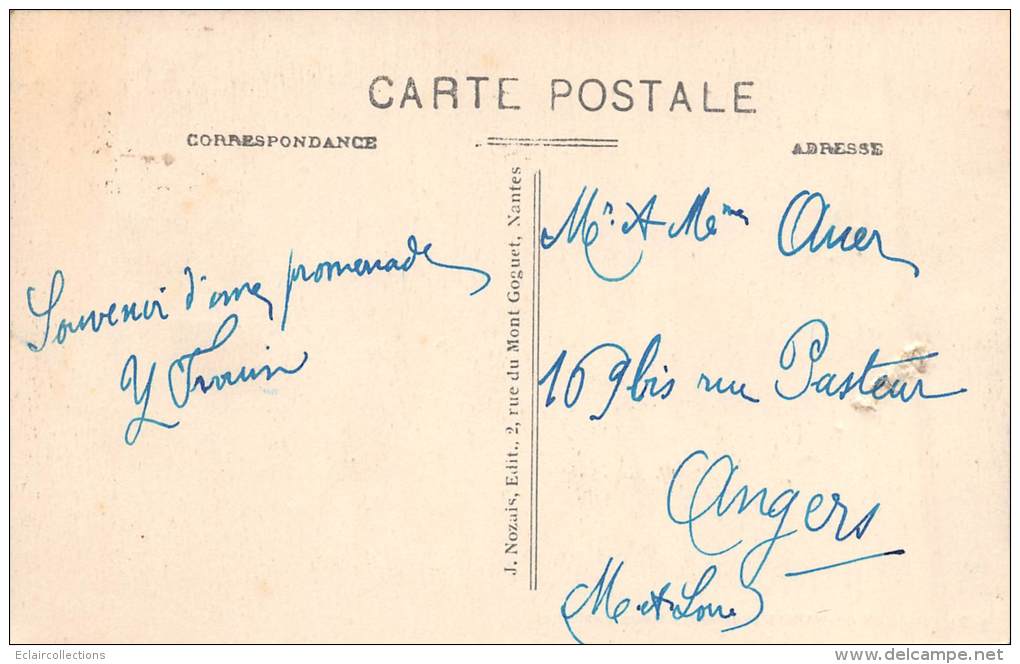 CARTE POSTALE
CORRESPONDANCE
ADRESSE
Souvenir d'une promenade
Y
J. Nozais, Edit., 2, rue du Mont Goguet, Nantes
Mr. et Mme Auer
169 bis rue Pasteur
Angers
M.et.Loire
Eclaircollections
http://www.delcampe.net